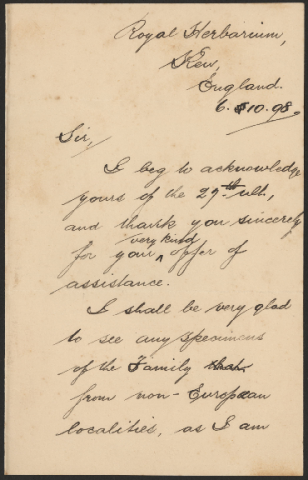 Royal Herbarium,
Kew,
England.
6.10.98.
Sir,
I beg to acknowledge
yours of the 29th ult,
and thank you sincerely
for your very kind offer of
assistance.
I shall be very glad
to see any specimens
of the Family that
from non-European
localities, as I am